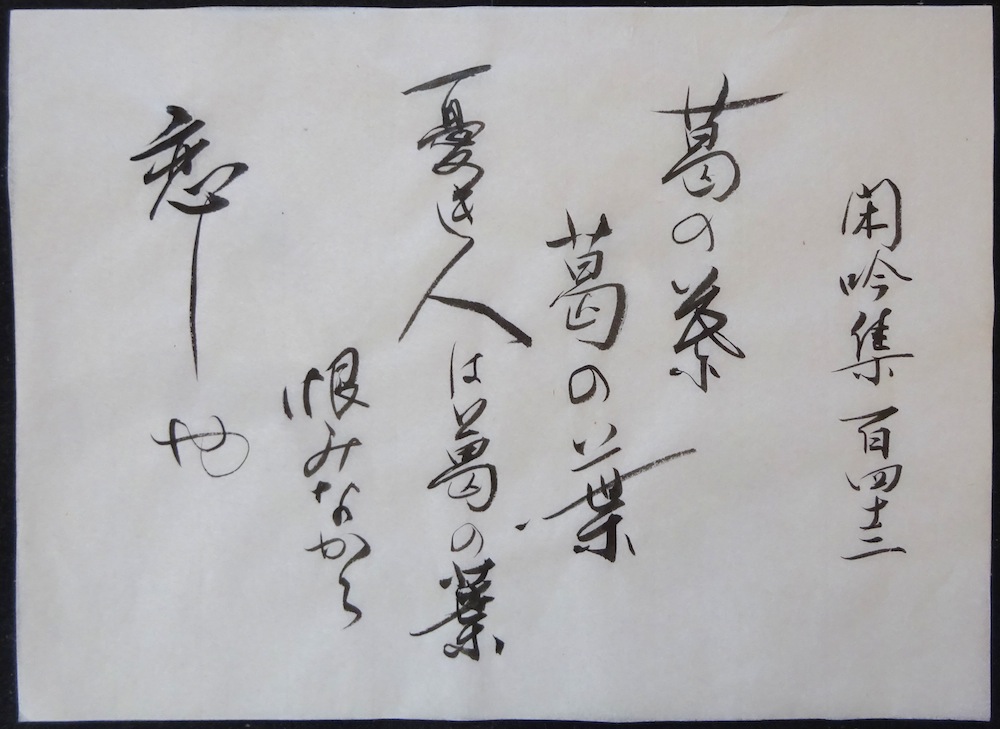 閑吟集 百四十二
葛の葉
葛の葉
憂き人は葛の葉の
恨みながら
恋しや